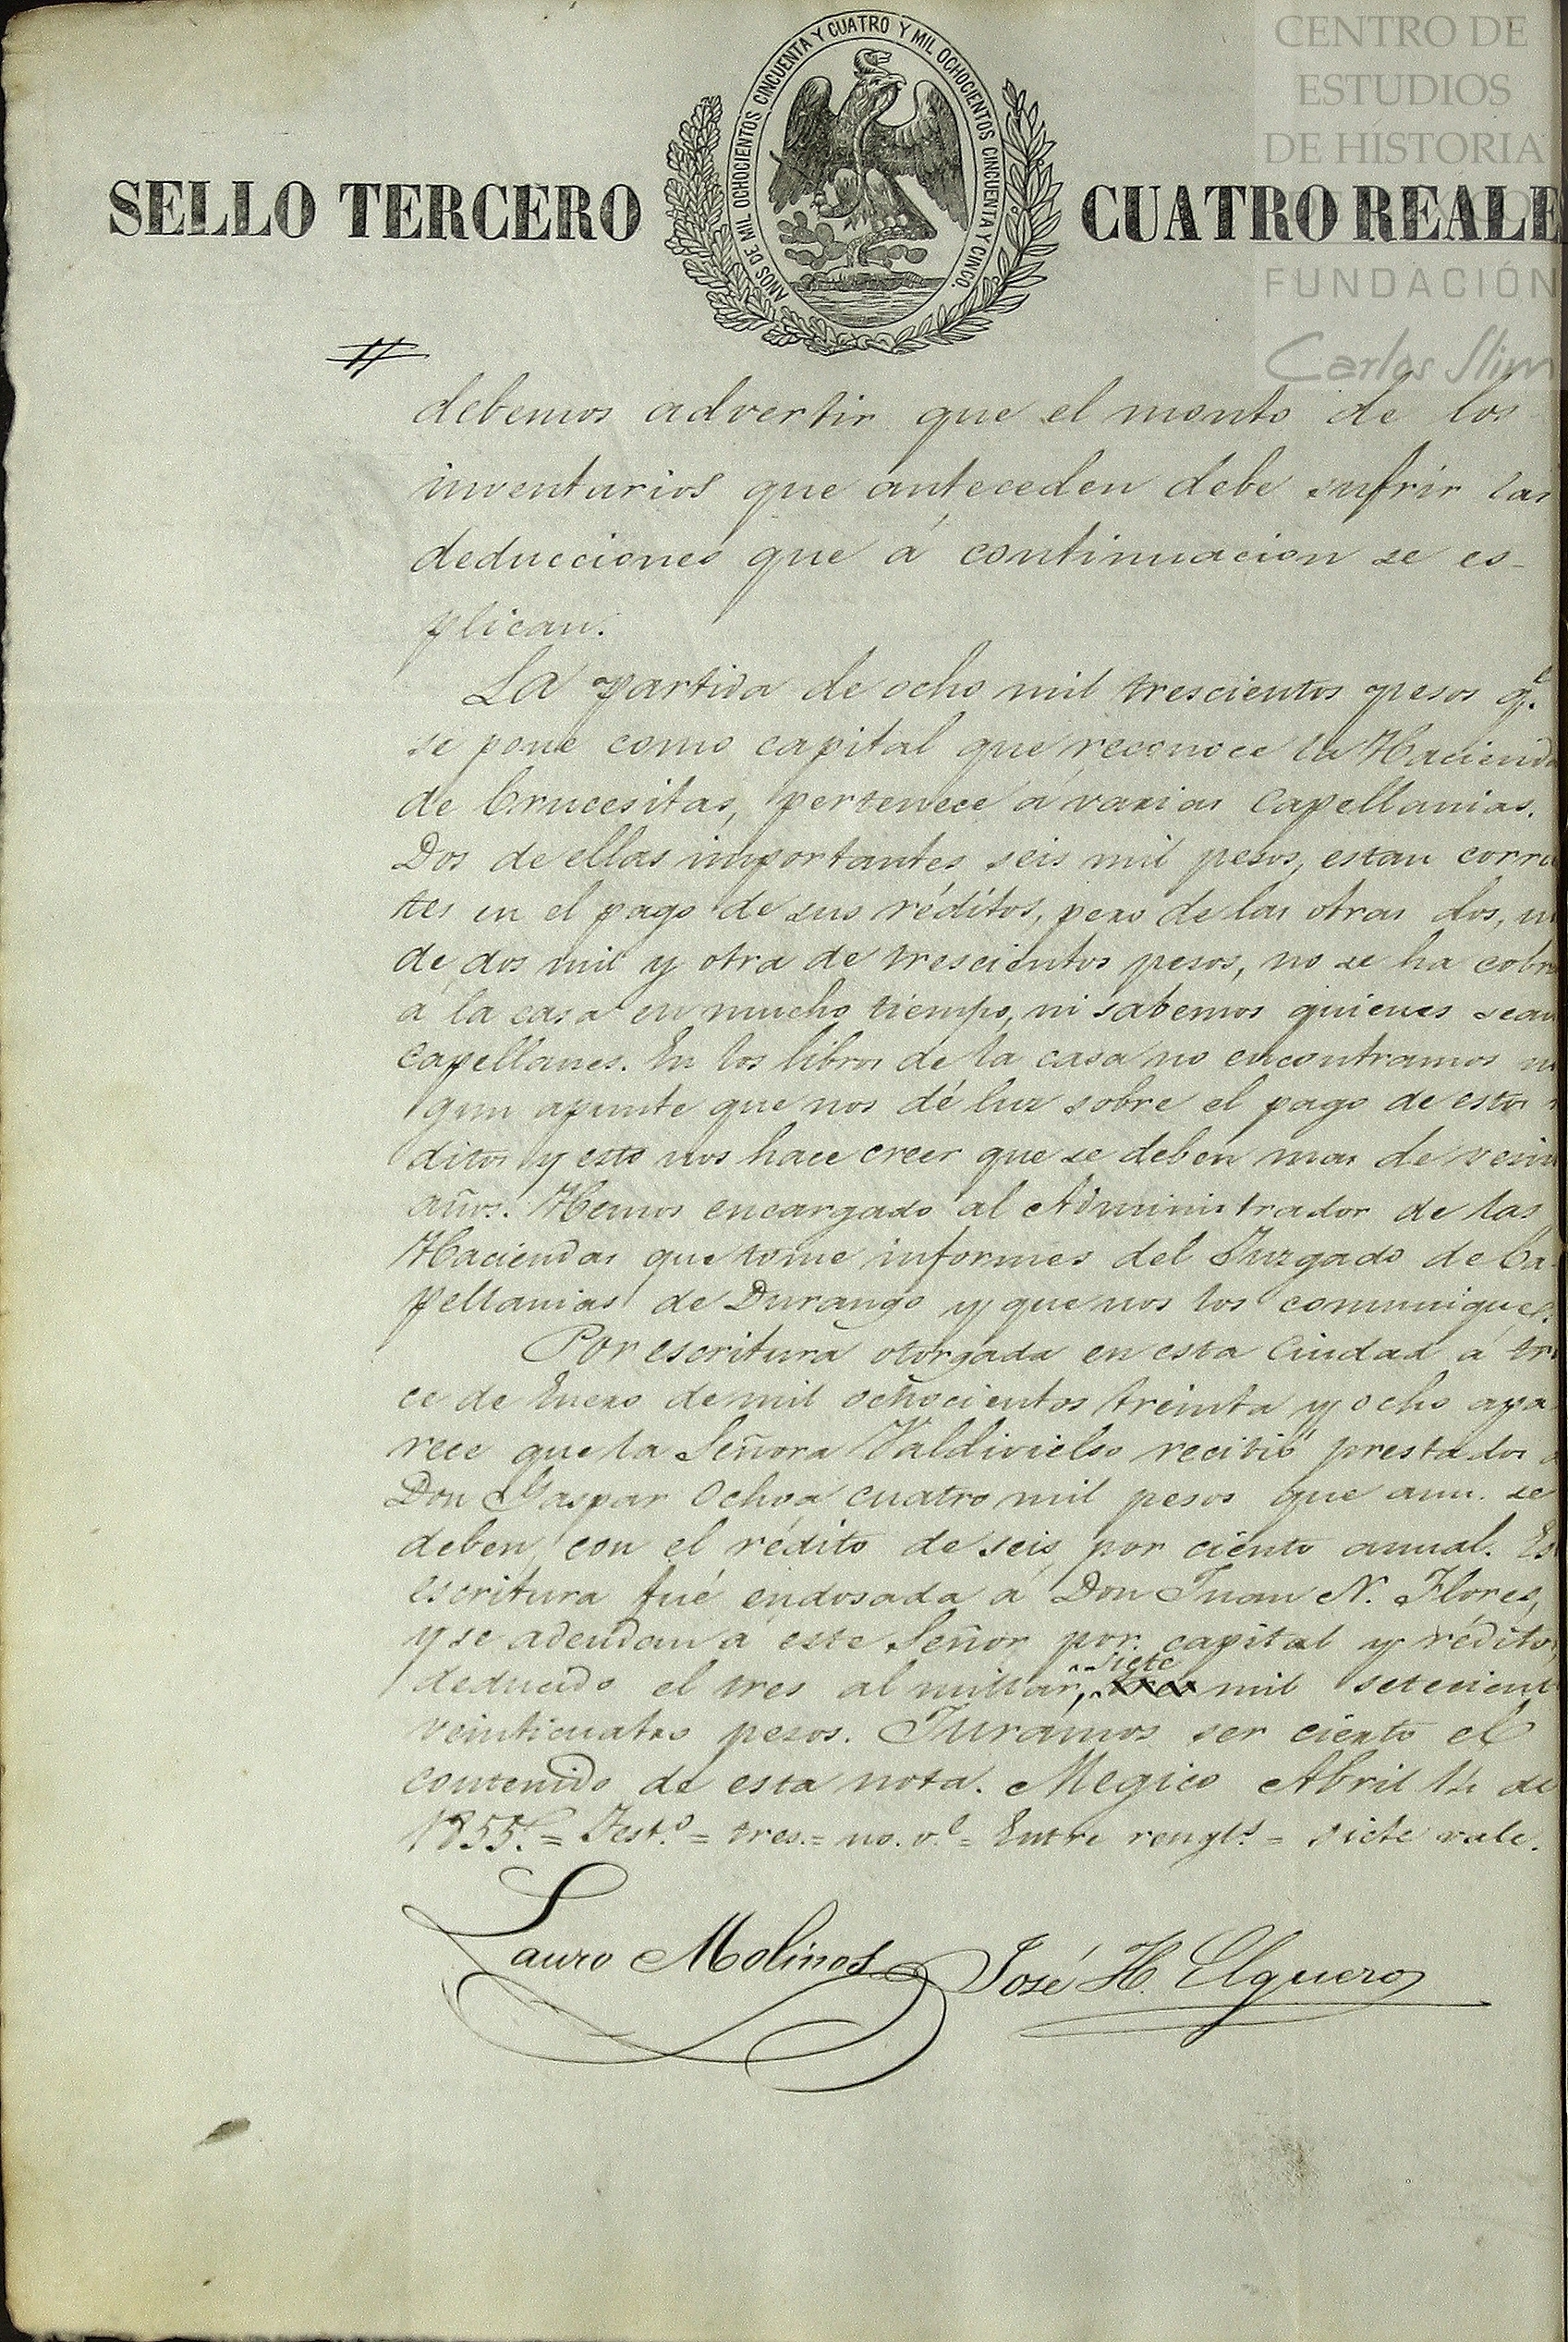 CENTRO DE
ESTUDIOS
DE HISTORIA
FUNDACIÓN
Carlos Slim
AÑOS DE MIL OCHOCIENTOS CINCUENTA Y CUATRO Y MIL OCHOCIENTOS CINCUENTA Y CINCO.
SELLO TERCERO CUATRO REALE
debemos advertir que el monto de los
inventarios que anteceden debe sufrir las
deducciones que á continuacion se es-
plican.
La partida de ocho mil trescientos pesos q.e
se pone como capital que reconoce la Haciend
de Crucesitas, pertenece á varias Capellanias.
Dos de ellas importantes seis mil pesos, estan corri
tes en el pago de sus réditos, pero de las otras dos, u
de dos mil y otra de trescientos pesos, no se ha cobr
á la casa en mucho tiempo, ni sabemos quienes sean
Capellanes. En los libros de la casa no encontramos ni
gun apunte que nos dé luz sobre el pago de estos r
ditos y esto nos hace creer que se deben mas de vein
años. Hemos encargado al Administrador de las
Haciendas que tome informes del Juzgado de Ca-
pellanias de Durango y que nos los comunique.
Por escritura otorgada en esta Ciudad á tre
ce de Enero de mil ochocientos treinta y ocho apa-
rece que la Señora Valdivielso recibió prestados d
Don Gaspar Ochoa cuatro mil pesos que aun se
deben con el rédito de seis por ciento anual. Es
escritura fué endosada á Don Juan N. Flores,
y se adeudan á este Señor por capital y rédito,
deducido el tres al millar, siete tres mil setecient
veinticuatro pesos. Juramos ser cierto el
contenido de esta nota. Megico Abril 14 de
1855. = Test.o = tres = no. v.e = Entre rengl.s = siete vale.
Lauro Molinos José H. Elguero